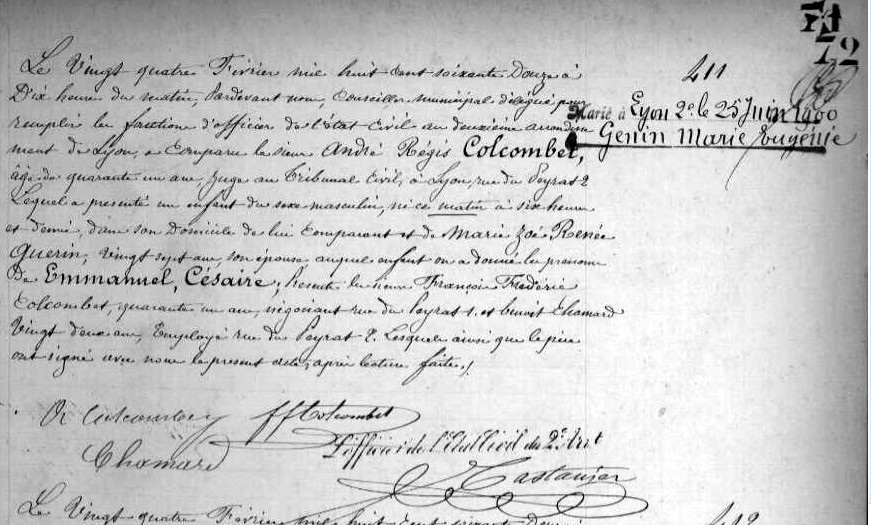 72
411
Le Vingt quatre Février mil huit cent soixante Douze à
Dix heures du matin, Pardevant nous, Conseiller municipal délégué pour
remplir les fonctions d'officier de l'État Civil au deuxième arrondisse
ment de Lyon, a Comparu le sieur André Régis Colcombet,
âgé de quarante un ans, Juge au Tribunal Civil, à Lyon, rue du Peyrat 2
Lequel a presenté un enfant du sexe masculin, né ce matin à six heures
et demie, dans son Domicile de lui Comparant et de Marie Zoé Renée
Guerin, Vingt sept ans, son épouse auquel enfant on a donné les prenoms
de Emmanuel, Césaire, Présents les sieurs François Frédéric
Colcombet, quarante un ans, négociant rue du Peyrat 1. et Benoit Chamard
Vingt deux ans, Employé rue du Peyrat 2. Lesquels ainsi que le père
ont signé avec nous le present acte, après lecture faite./
Marié à Lyon 2e le 25 Juin 1900
Genin Marie Eugenie
Colcombet
ff Colcombet
Chamard
L'officier de l'État Civil du 2e Arrt
Le Vingt quatre Février mil huit cent soixante Douze
412